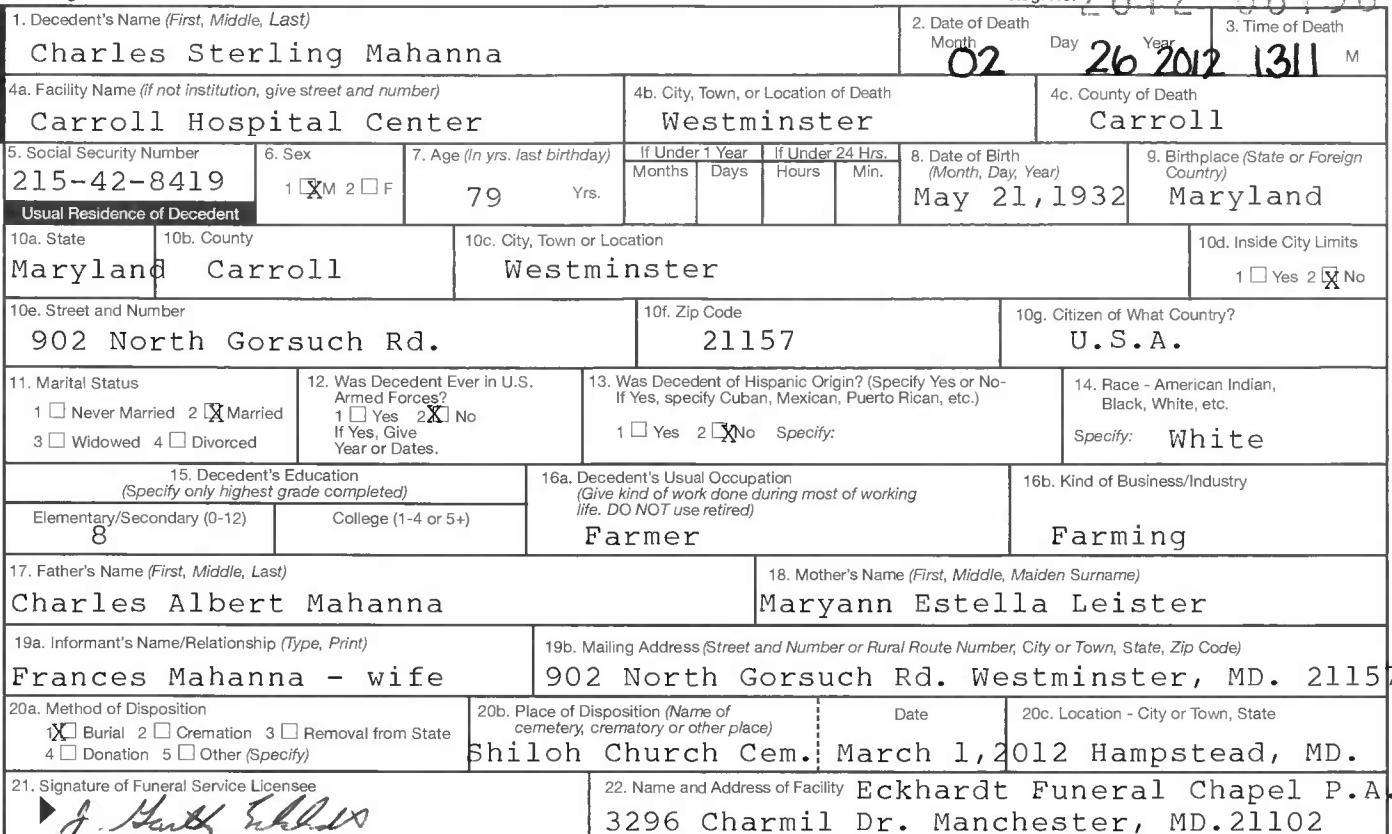 1. Decedent's Name (First, Middle, Last)
Charles Sterling Mahanna
2. Date of Death
Month Day Year
02 26 2012
3. Time of Death
1311 M
4a. Facility Name (if not institution, give street and number)
Carroll Hospital Center
4b. City, Town, or Location of Death
Westminster
4c. County of Death
Carroll
5. Social Security Number
215-42-8419
6. Sex
1 X M 2 ☐ F
7. Age (In yrs. last birthday)
79 Yrs.
If Under 1 Year
Months Days
If Under 24 Hrs.
Hours Min.
8. Date of Birth
(Month, Day, Year)
May 21,1932
9. Birthplace (State or Foreign
Country)
Maryland
Usual Residence of Decedent
10a. State
Maryland
10b. County
Carroll
10c. City, Town or Location
Westminster
10d. Inside City Limits
1 ☐ Yes 2 X No
10e. Street and Number
902 North Gorsuch Rd.
10f. Zip Code
21157
10g. Citizen of What Country?
U.S.A.
11. Marital Status
1 ☐ Never Married 2 X Married
3 ☐ Widowed 4 ☐ Divorced
12. Was Decedent Ever in U.S.
Armed Forces?
1 ☐ Yes 2 X No
If Yes, Give
Year or Dates.
13. Was Decedent of Hispanic Origin? (Specify Yes or No-
If Yes, specify Cuban, Mexican, Puerto Rican, etc.)
1 ☐ Yes 2 X No Specify:
14. Race - American Indian,
Black, White, etc.
Specify: White
15. Decedent's Education
(Specify only highest grade completed)
Elementary/Secondary (0-12)
8
College (1-4 or 5+)
16a. Decedent's Usual Occupation
(Give kind of work done during most of working
life. DO NOT use retired)
Farmer
16b. Kind of Business/Industry
Farming
17. Father's Name (First, Middle, Last)
Charles Albert Mahanna
18. Mother's Name (First, Middle, Maiden Surname)
Maryann Estella Leister
19a. Informant's Name/Relationship (Type, Print)
Frances Mahanna - wife
19b. Mailing Address (Street and Number or Rural Route Number, City or Town, State, Zip Code)
902 North Gorsuch Rd. Westminster, MD. 21157
20a. Method of Disposition
1 X Burial 2 ☐ Cremation 3 ☐ Removal from State
4 ☐ Donation 5 ☐ Other (Specify)
20b. Place of Disposition (Name of
cemetery, crematory or other place)
Shiloh Church Cem.
Date
March 1,2012
20c. Location - City or Town, State
Hampstead, MD.
21. Signature of Funeral Service Licensee
22. Name and Address of Facility Eckhardt Funeral Chapel P.A.
3296 Charmil Dr. Manchester, MD.21102